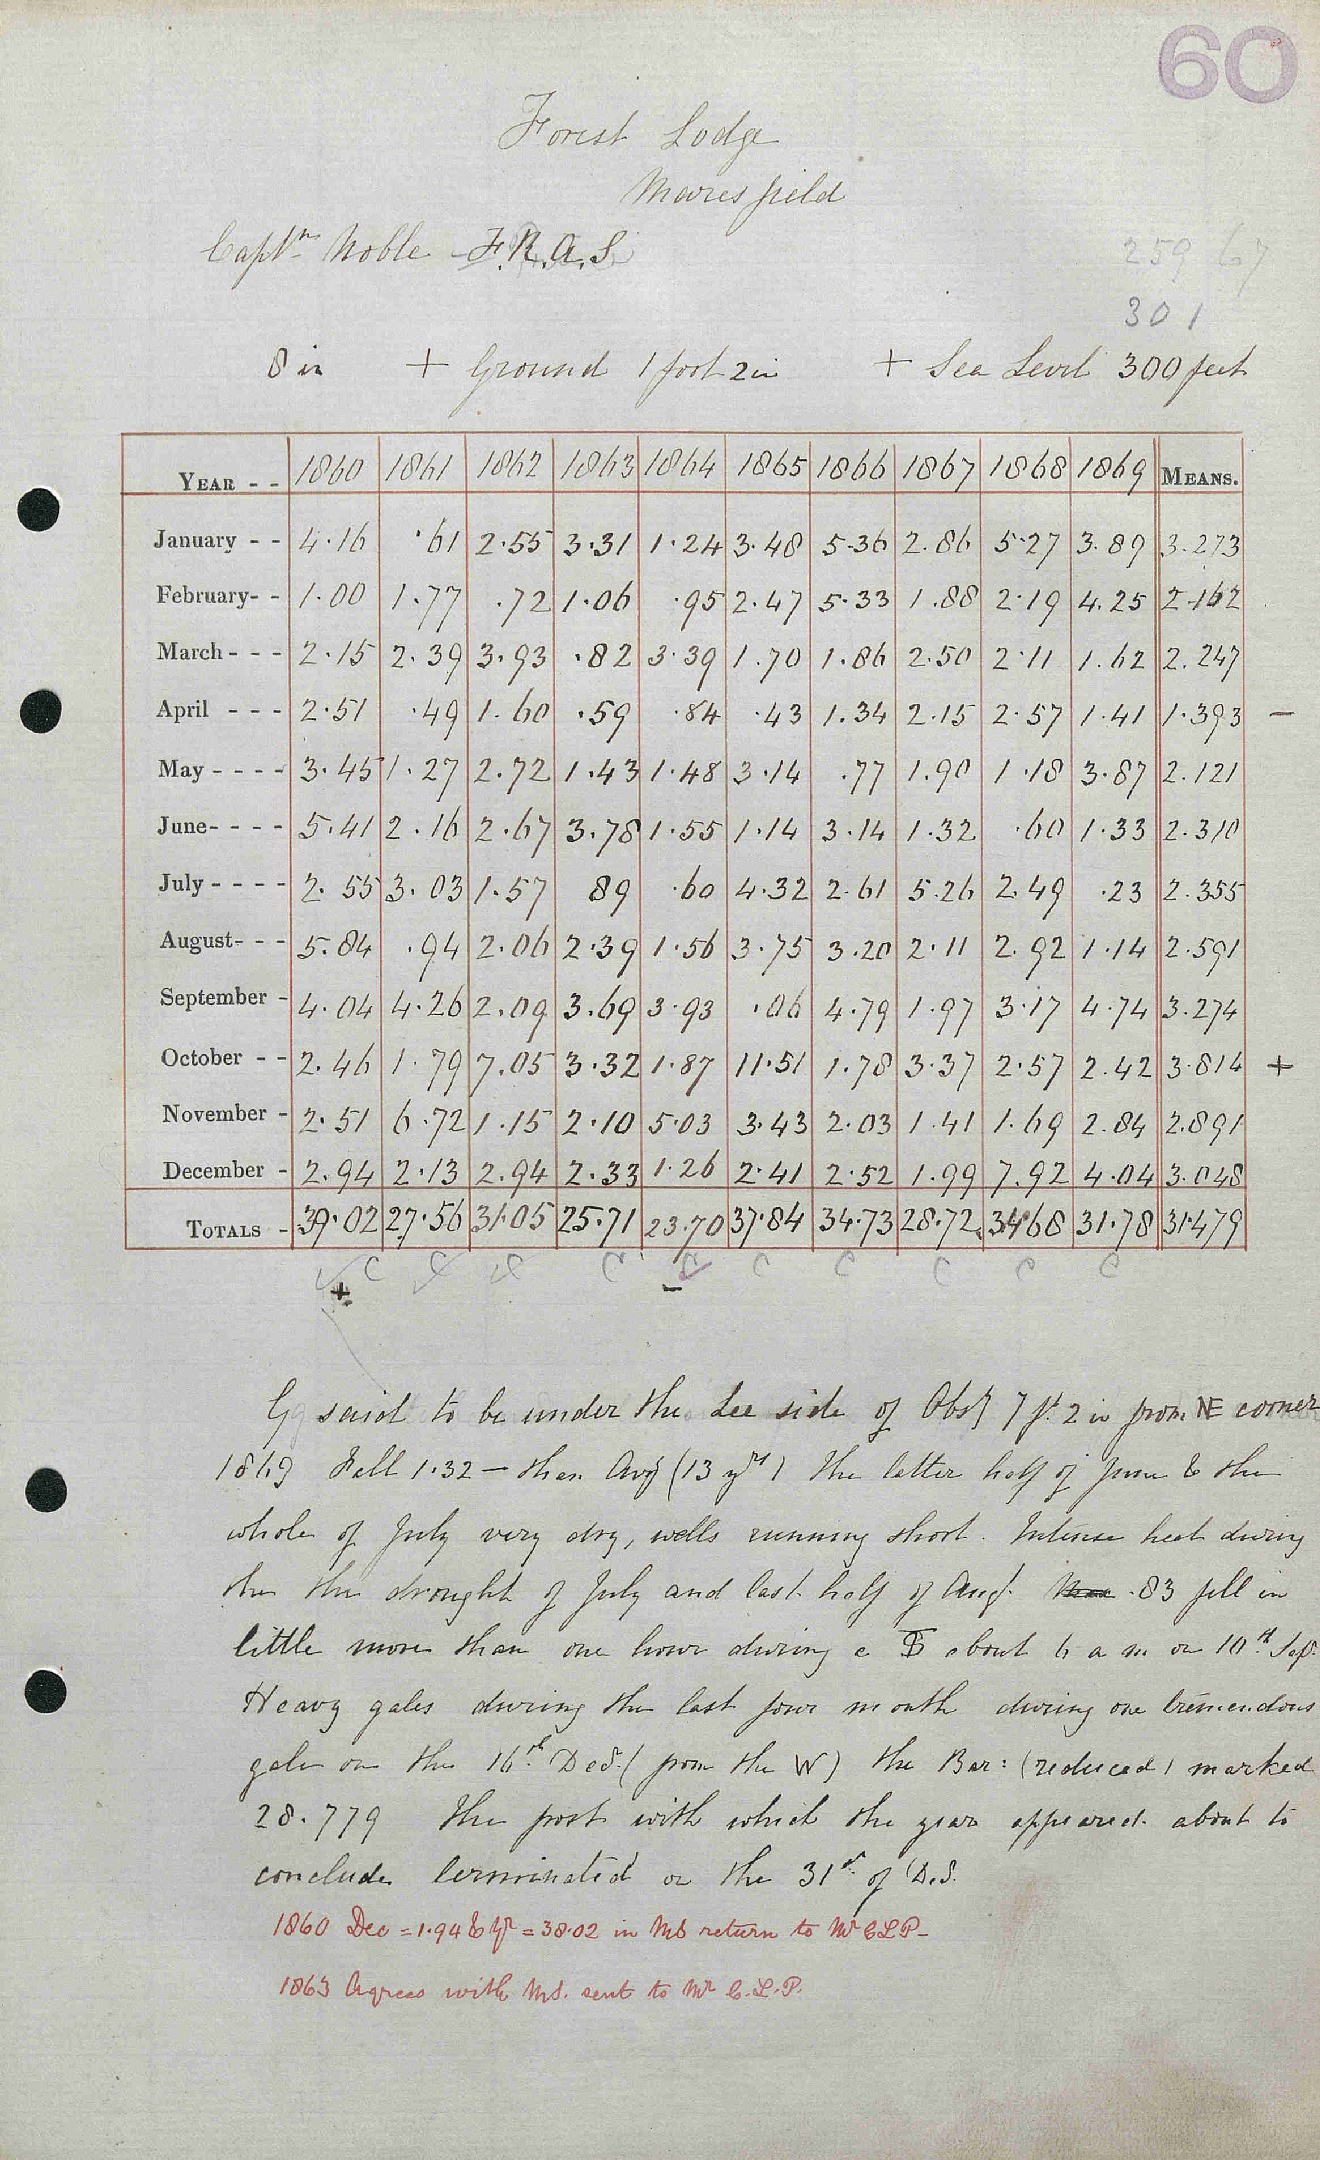 60
Forest Lodge
Maresfield
Captn Noble F.R.A.S
259 67
301
8 in + Ground 1 foot 2 in + Sea Level 300 feet
YEAR - - 1860 1861 1862 1863 1864 1865 1866 1867 1868 1869 MEANS.
January - - 4.16 .61 2.55 3.31 1.24 3.48 5.36 2.86 5.27 3.89 3.273
February- - 1.00 1.77 .72 1.06 .95 2.47 5.33 1.88 2.19 4.25 2.162
March - - - 2.15 2.39 3.93 .82 3.39 1.70 1.86 2.50 2.11 1.62 2.247
April - - - 2.51 .49 1.60 .59 .84 .43 1.34 2.15 2.57 1.41 1.393 —
May - - - - 3.45 1.27 2.72 1.43 1.48 3.14 .77 1.90 1.18 3.87 2.121
June- - - - 5.41 2.16 2.67 3.78 1.55 1.14 3.14 1.32 .60 1.33 2.310
July - - - - 2.55 3.03 1.57 89 .60 4.32 2.61 5.26 2.49 .23 2.355
August- - - 5.84 .94 2.06 2.39 1.56 3.75 3.20 2.11 2.92 1.14 2.591
September - 4.04 4.26 2.09 3.69 3.93 .06 4.79 1.97 3.17 4.74 3.274
October - - 2.46 1.79 7.05 3.32 1.87 11.51 1.78 3.37 2.57 2.42 3.814 +
November - 2.51 6.72 1.15 2.10 5.03 3.43 2.03 1.41 1.69 2.84 2.891
December - 2.94 2.13 2.94 2.33 1.26 2.41 2.52 1.99 7.92 4.04 3.048
TOTALS - 39.02 27.56 31.05 25.71 23.70 37.84 34.73 28.72 34.68 31.78 31.479
C C C C C C C C C C
+ —
G said to be under the Lee side of Obsy 7 ft 2 in from NE corner
1869 Fall 1.32 — than Avg (13 yrs) The latter half of June & the
whole of July very dry, wells running short. Intense heat during
the the drought of July and last half of Augt. .83 fell in
little more than one hour during a about 6 a m on 10th Sep.
Heavy gales during the last four month during one tremendous
gale on the 16th Dec. (from the W) the Bar: (reduced) marked
28.779 The frost with which the year appeared about to
conclude terminated on the 31st of D.S.
1860 Dec = 1.94 & Yr = 38.02 in MS return to Mr CLP —
1863 Agrees with MS. sent to Mr C.L.P.